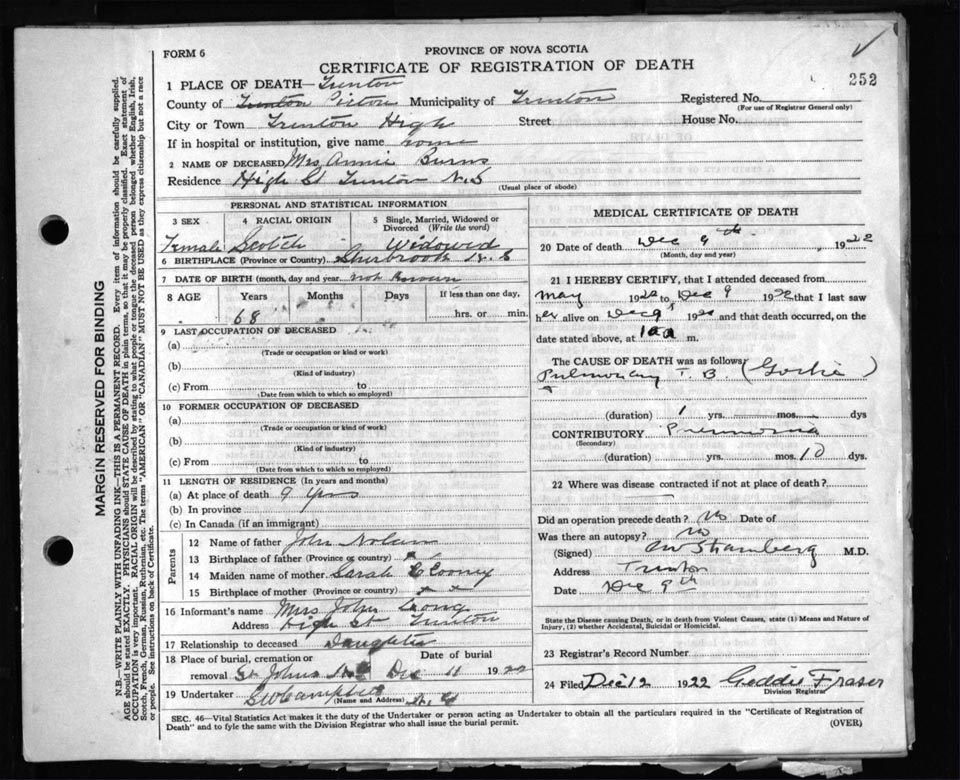 FORM 6
PROVINCE OF NOVA SCOTIA
CERTIFICATE OF REGISTRATION OF DEATH
252
1 PLACE OF DEATH—Trenton
County of Trenton Pictou Municipality of Trenton
Registered No.
(For use of Registrar General only)
City or Town Trenton High Street
House No.
If in hospital or institution, give name
2 NAME OF DECEASED Mrs Annie Burns
Residence High St Trenton N.S
(Usual place of abode)
PERSONAL AND STATISTICAL INFORMATION
3 SEX
4 RACIAL ORIGIN
5 Single, Married, Widowed or Divorced (Write the word)
Female Scotch Widowed
6 BIRTHPLACE (Province or Country) Sherbrook N.S
7 DATE OF BIRTH (month, day and year) not known
8 AGE Years Months Days If less than one day,
68 hrs. or min.
9 LAST OCCUPATION OF DECEASED
(a)
(Trade or occupation or kind or work)
(b)
(Kind of industry)
(c) From to
(Date from which to which so employed)
10 FORMER OCCUPATION OF DECEASED
(a)
(Trade or occupation or kind of work)
(b)
(Kind of industry)
(c) From to
(Date from which to which so employed)
11 LENGTH OF RESIDENCE (In years and months)
(a) At place of death 9 yrs
(b) In province
(c) In Canada (if an immigrant)
Parents
12 Name of father John Nolan
13 Birthplace of father (Province or country)
14 Maiden name of mother Sarah Cooney
15 Birthplace of mother (Province or country)
16 Informant's name Mrs John Long
Address High St Trenton
17 Relationship to deceased Daughter
18 Place of burial, cremation or removal St Johns Date of burial Dec 11 1922
19 Undertaker G W Campbell
(Name and Address)
MEDICAL CERTIFICATE OF DEATH
20 Date of death Dec 9th, 1922
(Month, day and year)
21 I HEREBY CERTIFY, that I attended deceased from
May 1922 to Dec 9 1922 that I last saw
her alive on Dec 9th 1922 and that death occurred, on the
date stated above, at m.
The CAUSE OF DEATH was as follows:
Pulmonary T. B.
(duration) 1 yrs. mos. dys
CONTRIBUTORY Pneumonia
(Secondary)
(duration) yrs. mos. 10 dys.
22 Where was disease contracted if not at place of death?
Did an operation precede death? No Date of
Was there an autopsy? no
(Signed) M.D.
Address Trenton
Date Dec 9th
State the Disease causing Death, or in death from Violent Causes, state (1) Means and Nature of Injury, (2) whether Accidental, Suicidal or Homicidal.
23 Registrar's Record Number
24 Filed Dec 12 1922 Geddie Fraser
Division Registrar
SEC. 46—Vital Statistics Act makes it the duty of the Undertaker or person acting as Undertaker to obtain all the particulars required in the "Certificate of Registration of
Death" and to fyle the same with the Division Registrar who shall issue the burial permit.
(OVER)
MARGIN RESERVED FOR BINDING
N.B.—WRITE PLAINLY WITH UNFADING INK—THIS IS A PERMANENT RECORD. Every item of information should be carefully supplied.
AGE should be stated EXACTLY. PHYSICIANS should STATE CAUSE OF DEATH in plain terms, so that it may be properly classified. Exact statement of
OCCUPATION is very important. RACIAL ORIGIN will be described by stating to what people or tongue the deceased person belonged whether English, Irish,
Scotch, French, German, Russian, Ruthenian, etc. The terms "AMERICAN" OR "CANADIAN" MUST NOT BE USED as they express citizenship but not a race
or people. See instructions on back of Certificate.